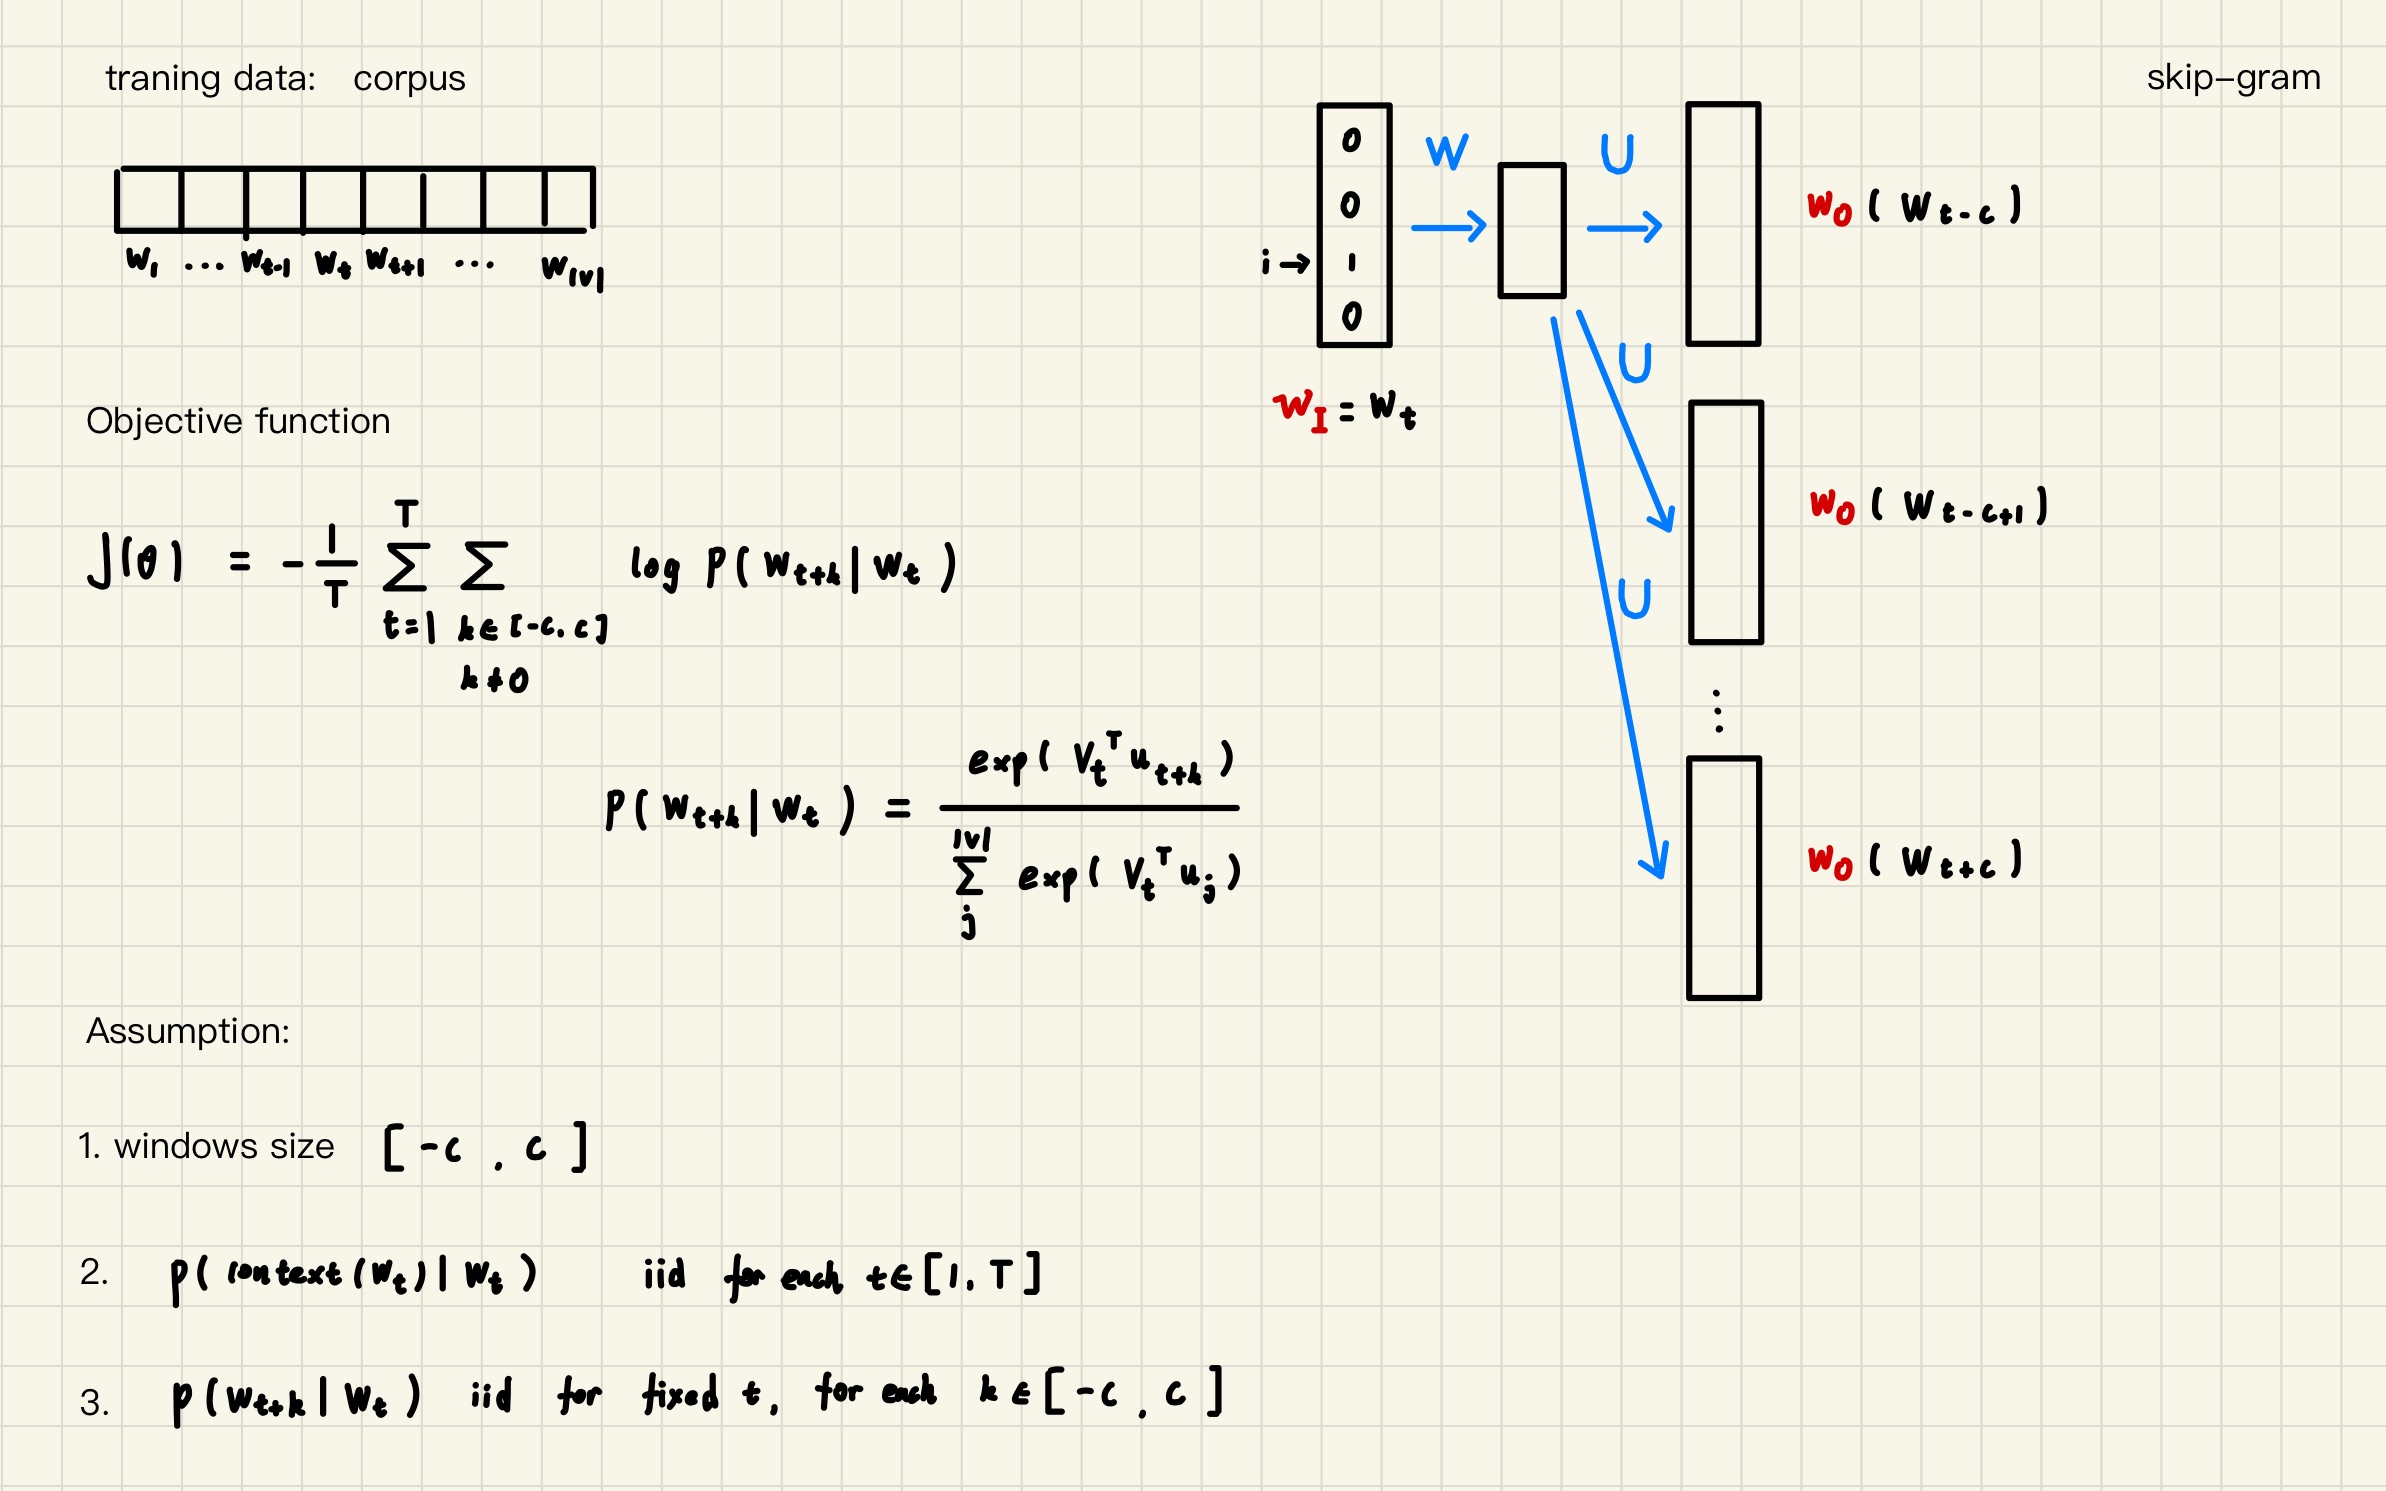 traning data: corpus
skip-gram
w₁ ... w_{t-1} w_t w_{t+1} ... w_{|v|}
0
0
i → 1
0
W
U
w_I = w_t
w_o ( w_{t-c} )
U
w_o ( w_{t-c+1} )
U
⋮
w_o ( w_{t+c} )
Objective function
J(θ) = - \frac{1}{T} \sum_{t=1}^{T} \sum_{k∈[-c, c], k≠0} log p( w_{t+k} | w_t )
p( w_{t+k} | w_t ) = \frac{exp( V_t^T u_{t+k} )}{\sum_{j}^{|v|} exp( V_t^T u_j )}
Assumption:
1. windows size [ -c , c ]
2. p( context(w_t) | w_t ) iid for each t∈[1, T]
3. p( w_{t+k} | w_t ) iid for fixed t, for each k∈[ -c , c ]